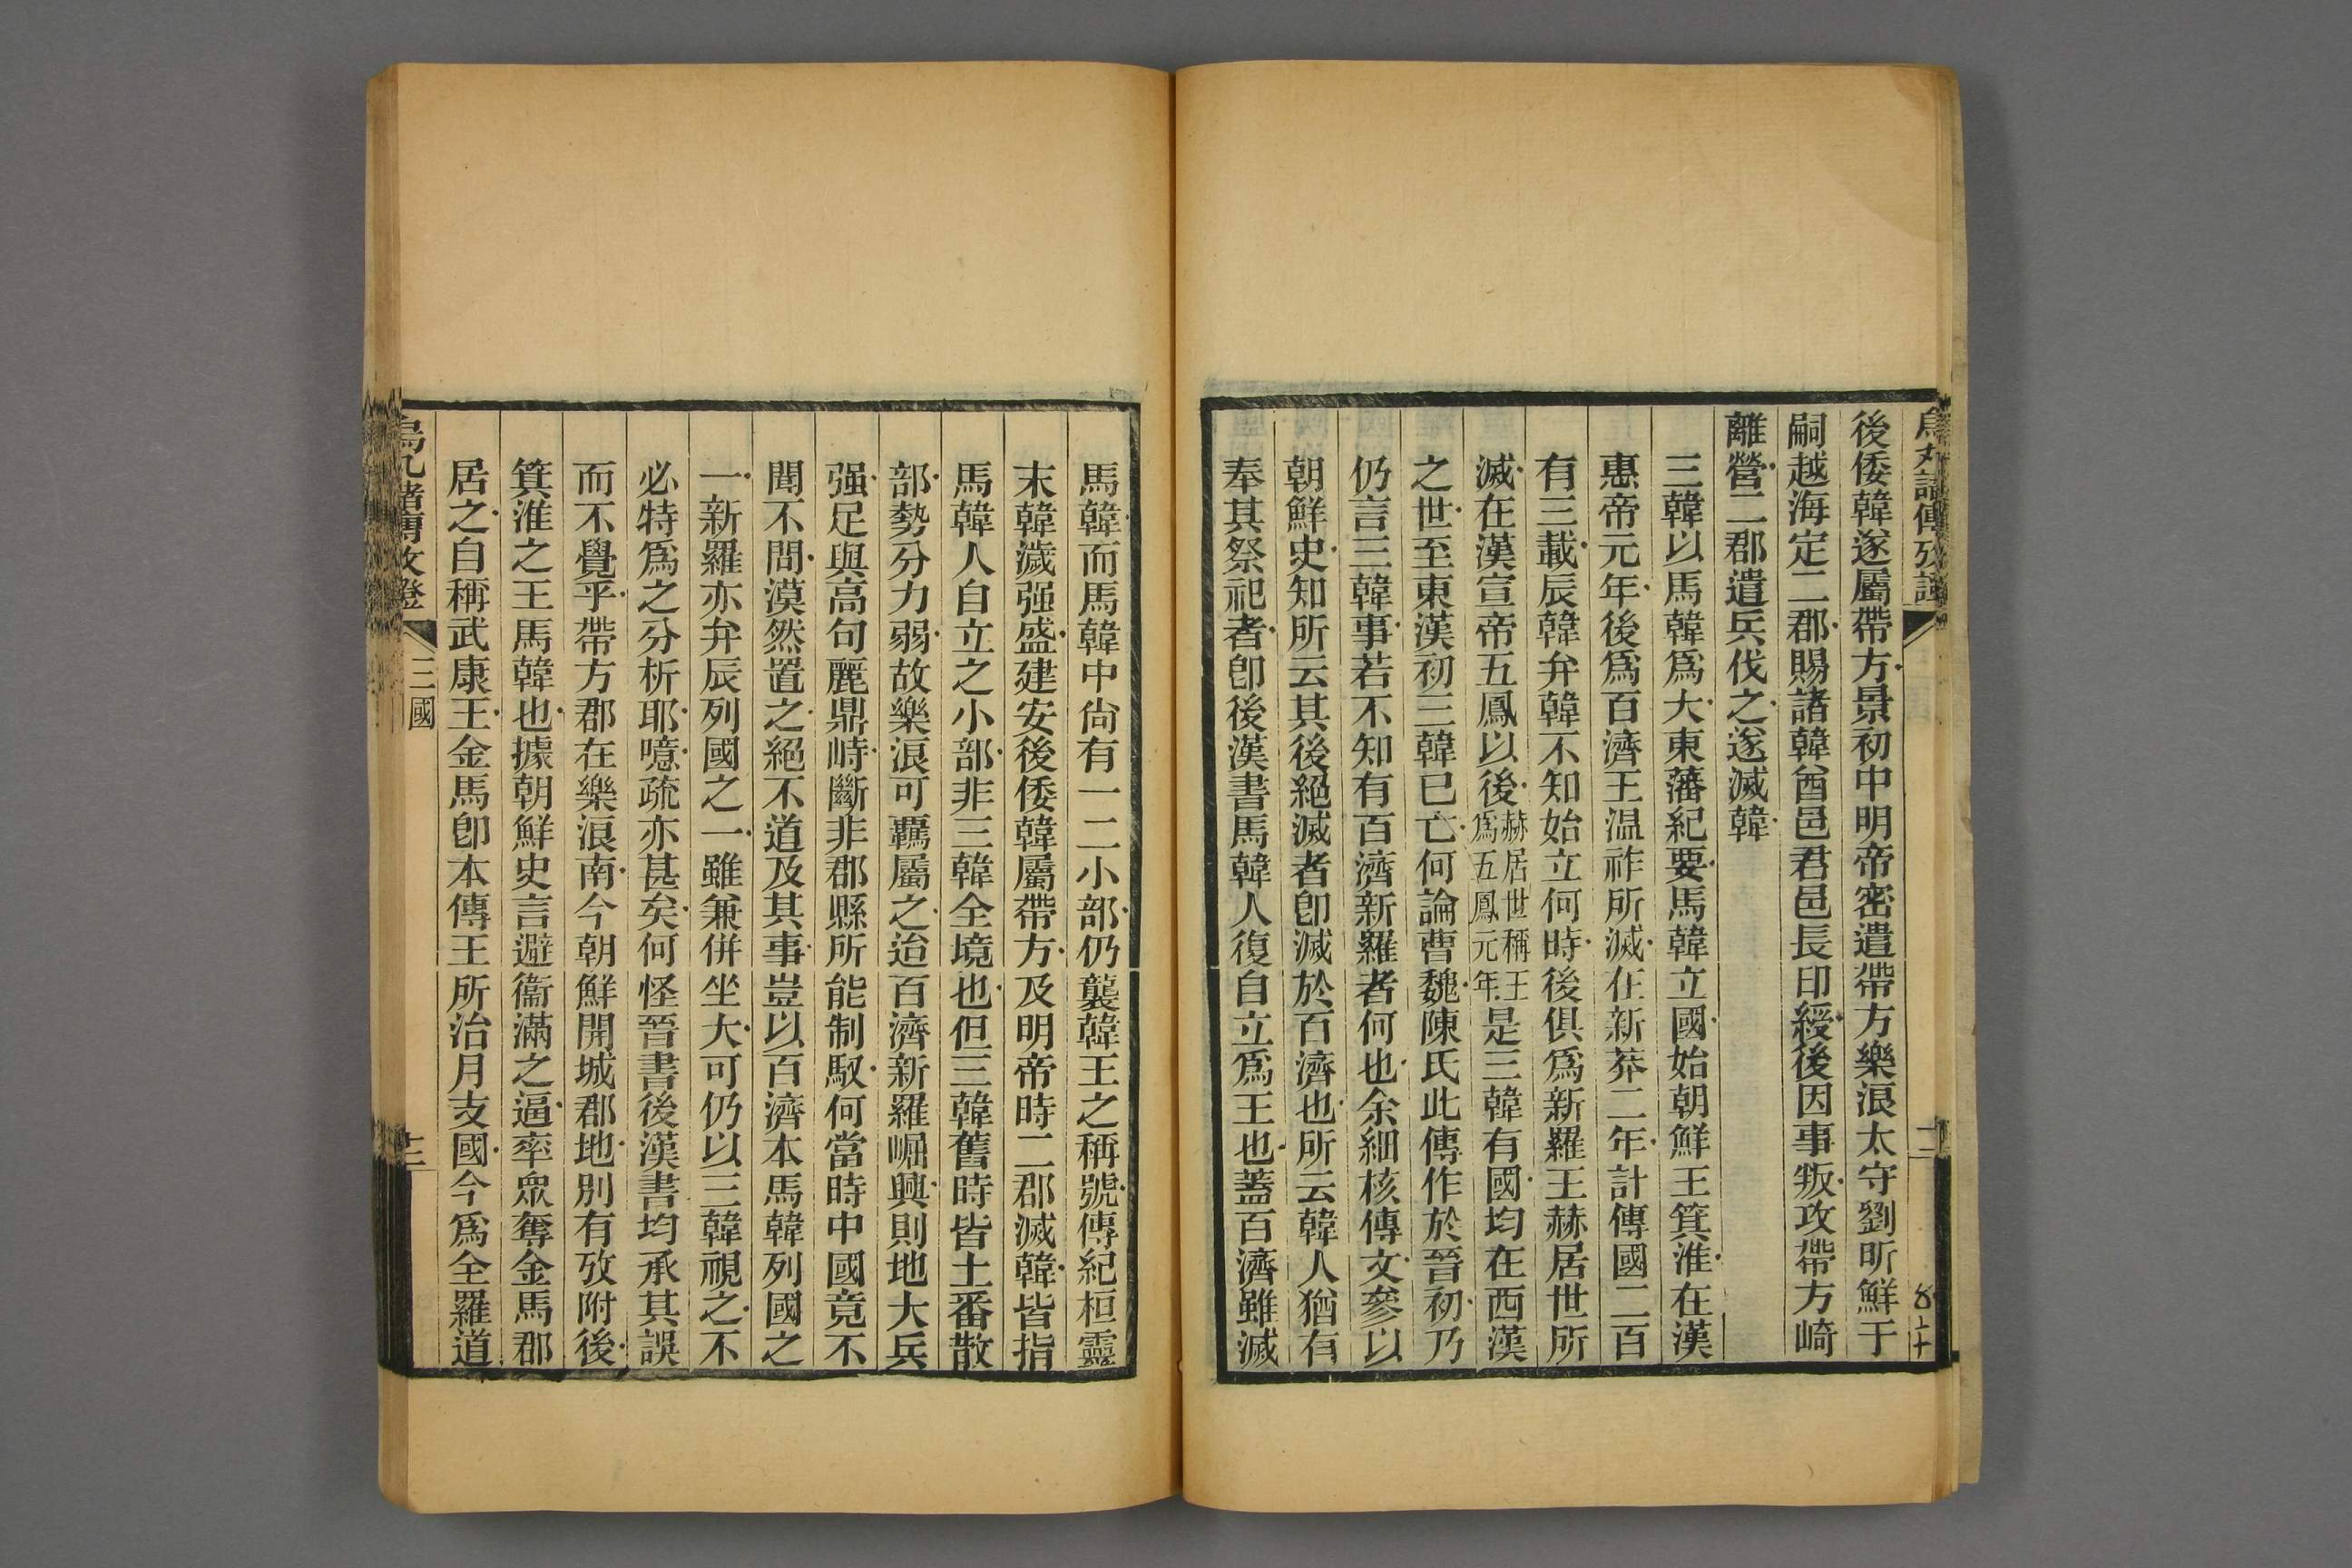 後倭韓遂屬帶方景初中明帝密遣帶方樂浪太守劉昕鮮于
嗣越海定二郡賜諸韓酋邑君邑長印綬後因事叛攻帶方崎
離營二郡遣兵伐之遂滅韓
三韓以馬韓爲大東藩紀要馬韓立國始朝鮮王箕淮在漢
惠帝元年後爲百濟王温祚所滅在新莽二年計傳國二百
有三載辰韓弁韓不知始立何時後俱爲新羅王赫居世所
滅在漢宣帝五鳳以後赫居世稱王爲五鳳元年是三韓有國均在西漢
之世至東漢初三韓已亡何論曹魏陳氏此傳作於晉初乃
仍言三韓事若不知有百濟新羅者何也余細核傳文參以
朝鮮史知所云其後絕滅者卽滅於百濟也所云韓人猶有
奉其祭祀者卽後漢書馬韓人復自立爲王也蓋百濟雖滅
馬韓而馬韓中尙有一二小部仍襲韓王之稱號傳紀桓靈
末韓濊强盛建安後倭韓屬帶方及明帝時二郡滅韓皆指
馬韓人自立之小部非三韓全境也但三韓舊時皆土番散
部勢分力弱故樂浪可羈屬之迨百濟新羅崛興則地大兵
强足與高句麗鼎峙斷非郡縣所能制馭何當時中國竟不
聞不問漠然置之絕不道及其事豈以百濟本馬韓列國之
一新羅亦弁辰列國之一雖兼併坐大可仍以三韓視之不
必特爲之分析耶噫疏亦甚矣何怪晉書後漢書均承其誤
而不覺乎帶方郡在樂浪南今朝鮮開城郡地別有攷附後
箕淮之王馬韓也據朝鮮史言避衞滿之逼率眾奪金馬郡
居之自稱武康王金馬卽本傳王所治月支國今爲全羅道
三國